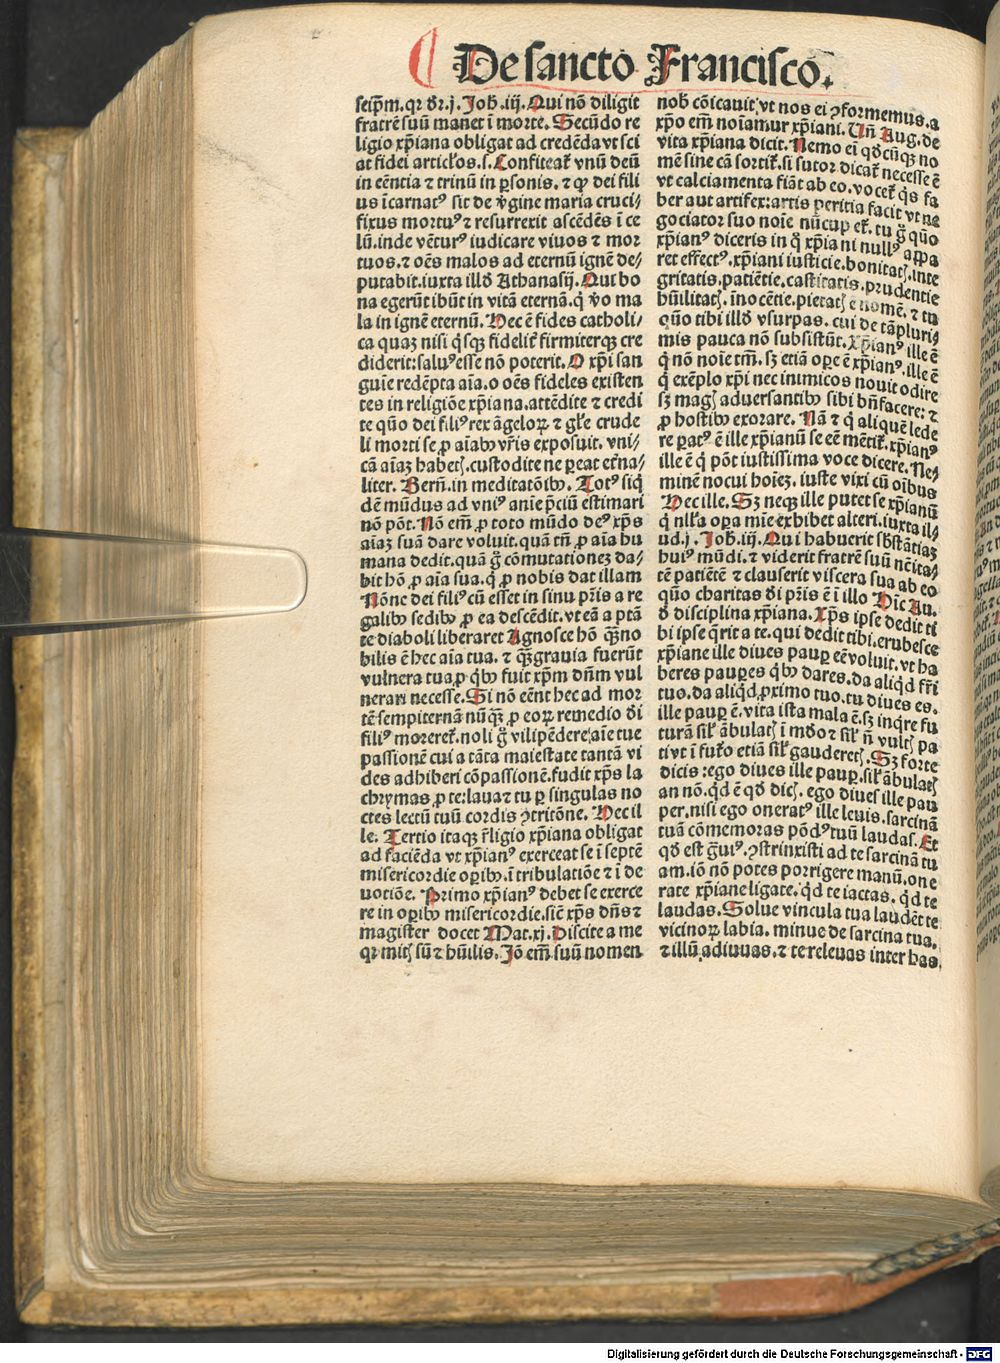 De sancto Francisco.
seip̄m. qꝛ dr̄. j. Joh̄. iij. Qui nō diligit
fratrē suū manet ī morte. Secūdo re
ligio xp̄iana obligat ad credēda vt sci
at fidei articl̓os. s. Confiteat̃ vnū deū
in eēntia ⁊ trinū in ꝑsonis. ⁊ ꝙ dei fili
us īcarnatꝰ sit de v̓gine maria cruci⸗
fixus mortuꝰ ⁊ resurrexit ascēdēs ī ce
lū. inde vēturꝰ iudicare viuos ⁊ mor
tuos. ⁊ oēs malos ad eternū ignē de⸗
putabit. iuxta illd̓ Athanasij. Qui bo
na egerūt ibūt in vitā eternā. q̇ v̓o ma
la in ignē eternū. Hec ē fides catholi⸗
ca quaꝫ nisi q̇sqꝫ fidelit̃ firmiterqꝫ cre
diderit: saluꝰ esse nō poterit. O xp̄i san
guīe redēpta aīa. o oēs fideles existen
tes in religiōe xp̄iana. attēdite ⁊ credi
te quō dei filiꝰ rex āgeloꝝ ⁊ gl̓e crude
li morti se ꝓ aīabꝰ vr̄is exposuit. vni⸗
cā aīaꝫ habetꝭ. custodite ne ꝑeat et̓na⸗
liter. Bern̄. in meditatōibꝰ. Totꝰ siq̇
dē mūdus ad vniꝰ anīe p̄ciū estimari
nō pōt. Nō em̄ ꝓ toto mūdo deꝰ xp̄s
aīaꝫ suā dare voluit. quā tn̄ ꝓ aīa hu
mana dedit. quā g̊ cōmutationeꝫ da⸗
bit hō ꝓ aīa sua. q̇ ꝓ nobis dat illam
Nōne dei filiꝰ cū esset in sinu pr̄is a re
galibꝰ sedibꝰ ꝓ ea descēdit. vt eā a ptā
te diaboli liberaret Agnosce hō q̄ꝫ no
bilis ē hec aīa tua. ⁊ q̄ꝫ grauia fuerūt
vulnera tua. ꝓ q̇bꝰ fuit xp̄m dn̄m vul
nerari necesse. Si nō eēnt hec ad mor
tē sempiternā nūq̄ꝫ ꝓ eoꝝ remedio d̓i
filiꝰ moreret̃. noli g̊ vilipēdere aīe tue
passionē cui a tāta maiestate tantā vi
des adhiberi cōpassionē. fudit xp̄s la
chrymas ꝓ te: laua tu ꝑ singulas no
ctes lectū tuū cordis ꝯtritōne. Hec il
le. Tertio itaqꝫ r̓ligio xp̄iana obligat
ad faciēda vt xp̄ianꝰ exerceat se ī septē
misericordie oꝑibꝰ. ī tribulatiōe ⁊ ī de
uotiōe. Primo xp̄ianꝰ debet se exerce
re in oꝑibꝰ misericordie. sic̄ xp̄s dn̄s ⁊
magister docet Mat. xj. Discite a me
qꝛ mitꝭ sū ⁊ hūilis. Jō em̄ suū nomen
nob̄ cōicauit, vt nos ei ꝯformemus. a
xp̄o em̄ noīamur xp̄iani. Un̄ Aug. de
vita xp̄iana dicit. Nemo ei qd̓cūqꝫ no
mē sine cā sortit̃. si sutor dicat̃ necesse ē
vt calciamenta fiāt ab eo. vocet̃ q̇s fa
ber aut artifex: artis peritia facit vt ne
gociator suo noīe nūcupet̃. tu g̊ quō
xp̄ianꝰ diceris in q̊ xp̄iani nullꝰ appa
ret effectꝰ. xp̄iani iusticie. bonitatꝭ. inte
gritatis. patiētie. castitatis. prudentie
hūilitatꝭ. īnocētie. pietatꝭ ē nomē. ⁊ tu
quō tibi illd̓ vsurpas. cui de tā pluri⸗
mis pauca nō subsistūt. Xp̄ianꝰ ille ē
q̇ nō noīe tm̄. sꝫ etiā oꝑe ē xp̄ianꝰ. ille ē
q̇ exēplo xp̄i nec inimicos nouit odire
sꝫ magꝭ aduersantibꝰ sibi bn̄facere: ⁊
ꝓ hostibꝰ exorare. Nā ⁊ q̇ aliquē lede
re ꝑatꝰ ē ille xp̄ianū se eē mētit̃. xp̄ianꝰ
ille ē q̇ pōt iustissima voce dicere. Ne⸗
minē nocui hoīeꝫ. iuste vixi cū oībus
Hec ille. Sꝫ neqꝫ ille putet se xp̄ianū
q̇ nll̓a oꝑa mīe exhibet alteri. iuxta il⸗
ud. j. Joh̄. iij. Qui habuerit sb̓stātiaꝫ
huiꝰ mūdi. ⁊ viderit fratrē suū nēcita⸗
tē patiētē ⁊ clauserit viscera sua ab eo
quō charitas d̓i pr̄is ē ī illo Dic̄ Au.
d̓ disciplina xp̄iana. Xp̄s ipse dedit ti
bi ipse q̄rit a te. qui dedit tibi. erubesce
xp̄iane ille diues pauꝑ eē voluit. vt ha
beres pauꝑes q̇bꝰ dares. da aliqd̓ fr̄i
tuo. da aliqd̓ ꝓximo tuo. tu diues es.
ille pauꝑ ē. vita ista mala ē. sꝫ inq̄re fu
turā sil̓ ābulatꝭ ī mdo ⁊ sil̓ n̄ vultꝭ pa
ti vt ī fut̓o etiā sil̓ gauderetꝭ. Sꝫ forte
dicis: ego diues ille pauꝑ. sil̓ ābulatꝭ
an nō. qd̓ ē qd̓ dicꝭ. ego diues ille pau
per. nisi ego oneratꝰ ille leuis. sarcinā
tuā cōmemoras pōdꝰ tuū laudas. Et
qd̓ est g̓uiꝰ. ꝯstrinxisti ad te sarcinā tu
am. iō nō potes porrigere manū. one
rate xp̄iane ligate. qd̓ te iactas. qd̓ te
laudas. Solue vincula tua laudēt te
vicinoꝝ labia. minue de sarcina tua.
⁊ illū adiuuas. ⁊ te releuas inter has
Digitalisierung gefördert durch die Deutsche Forschungsgemeinschaft - DFG